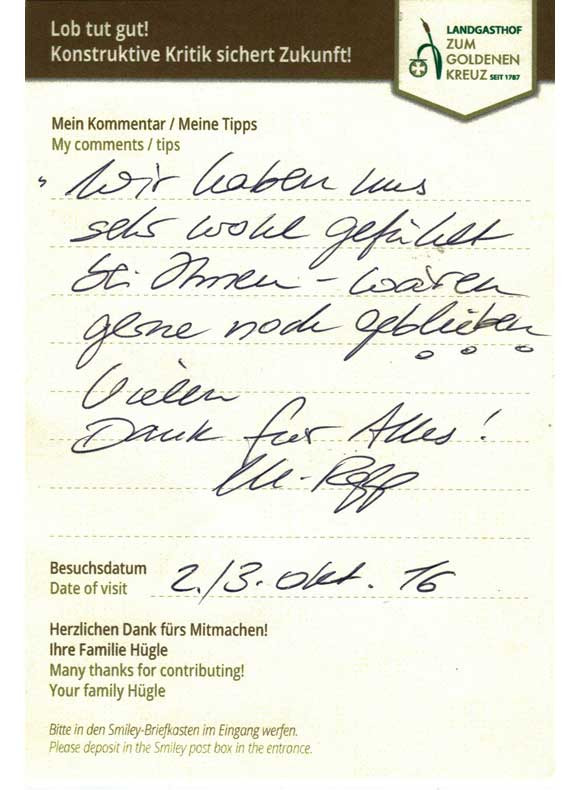 Lob tut gut!
Konstruktive Kritik sichert Zukunft!
LANDGASTHOF
ZUM
GOLDENEN
KREUZ SEIT 1787
Mein Kommentar / Meine Tipps
My comments / tips
Wir haben uns
sehr wohl gefühlt
bei Ihnen – wären
gerne noch geblieben
. . .
Vielen
Dank für Alles!
Besuchsdatum
Date of visit
2./3. Okt. 16
Herzlichen Dank fürs Mitmachen!
Ihre Familie Hügle
Many thanks for contributing!
Your family Hügle
Bitte in den Smiley-Briefkasten im Eingang werfen.
Please deposit in the Smiley post box in the entrance.